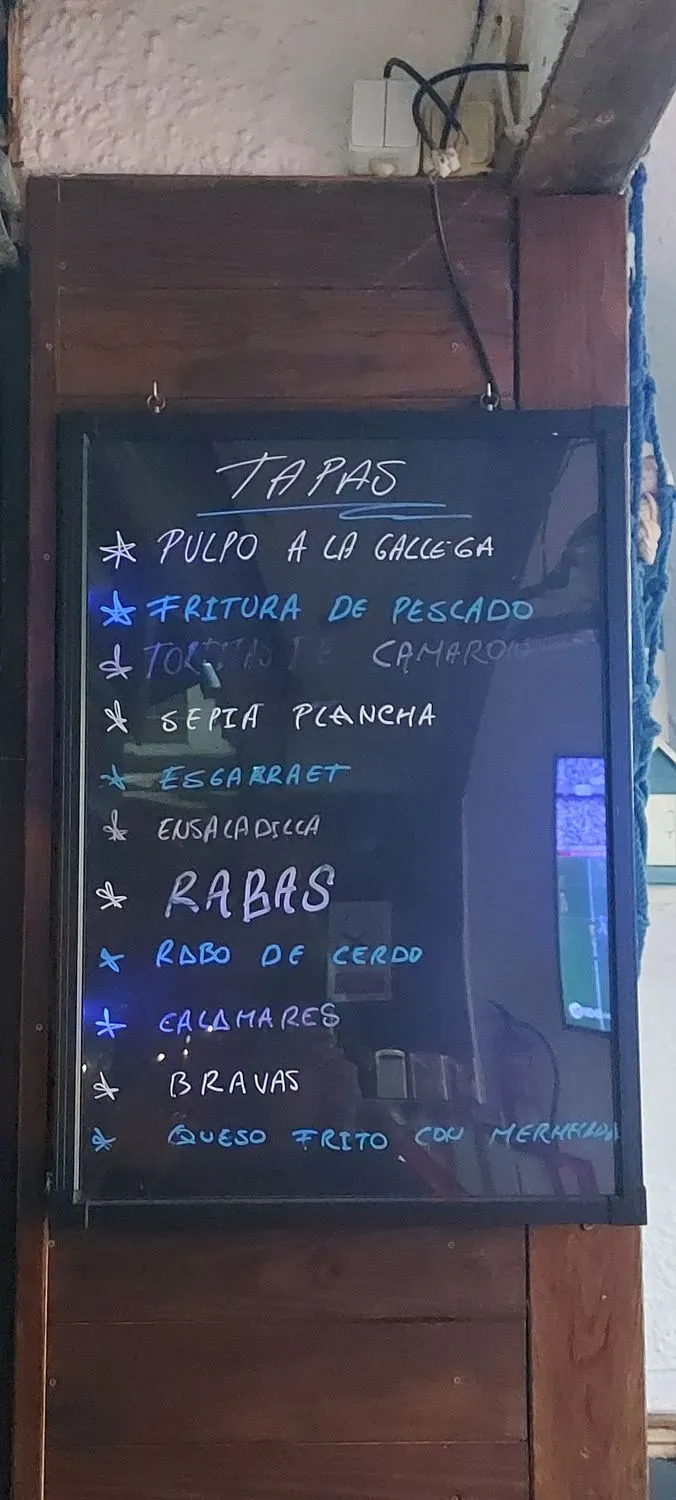 TAPAS
* PULPO A LA GALLEGA
* FRITURA DE PESCADO
* CAMARON
* SEPIA PLANCHA
* ESGARRAET
* ENSALADILLA
* RABAS
* RABO DE CERDO
* CALAMARES
* BRAVAS
* QUESO FRITO CON MERMELADA